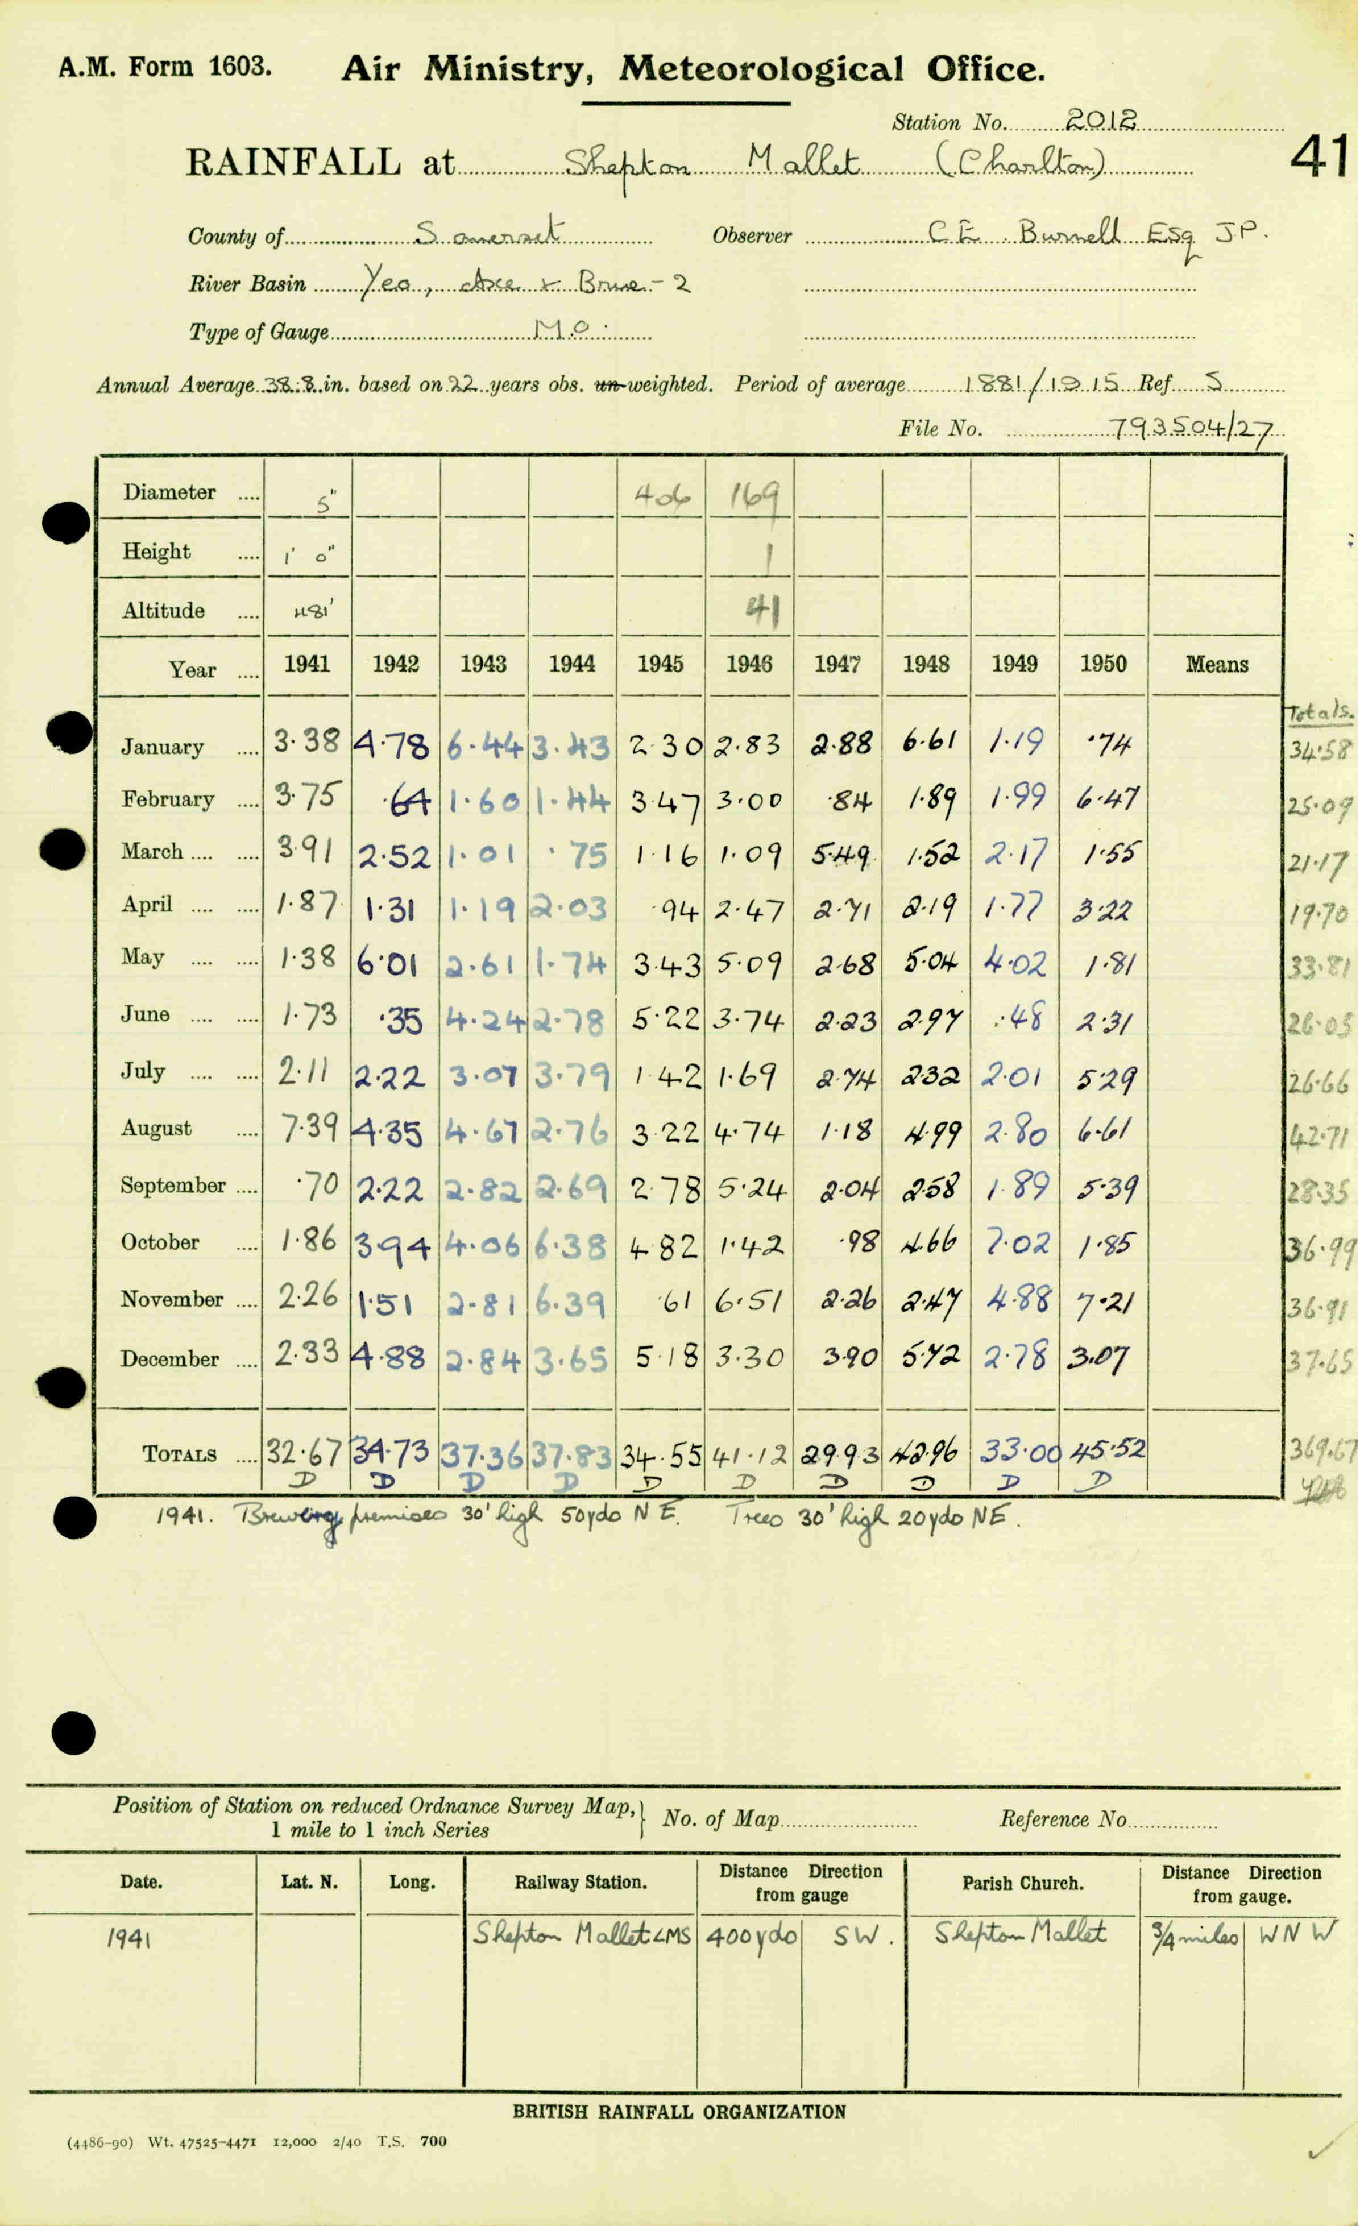 A.M. Form 1603. Air Ministry, Meteorological Office.
Station No. 2012
41
RAINFALL at Shepton Mallet (Charlton)
County of Somerset Observer C E. Burnell Esq J.P.
River Basin Yeo, Axe & Brue - 2
Type of Gauge M.O.
Annual Average 38.8 in. based on 22 years obs. un-weighted. Period of average 1881/1915 Ref S
File No. 793504/27
Diameter .... 5" 406 169
Height .... 1' 0" 1
Altitude .... 481' 41
Year .... 1941 1942 1943 1944 1945 1946 1947 1948 1949 1950 Means
Totals.
January .... 3.38 4.78 6.44 3.43 2.30 2.83 2.88 6.61 1.19 .74 34.58
February .... 3.75 .64 1.60 1.44 3.47 3.00 .84 1.89 1.99 6.47 25.09
March .... .... 3.91 2.52 1.01 .75 1.16 1.09 5.49 1.52 2.17 1.55 21.17
April .... .... 1.87 1.31 1.19 2.03 .94 2.47 2.71 2.19 1.77 3.22 19.70
May .... .... 1.38 6.01 2.61 1.74 3.43 5.09 2.68 5.04 4.02 1.81 33.81
June .... .... 1.73 .35 4.24 2.78 5.22 3.74 2.23 2.97 .48 2.31 26.05
July .... .... 2.11 2.22 3.07 3.79 1.42 1.69 2.74 2.32 2.01 5.29 26.66
August .... 7.39 4.35 4.67 2.76 3.22 4.74 1.18 4.99 2.80 6.61 42.71
September .... .70 2.22 2.82 2.69 2.78 5.24 2.04 2.58 1.89 5.39 28.35
October .... 1.86 3.94 4.06 6.38 4.82 1.42 .98 4.66 7.02 1.85 36.99
November .... 2.26 1.51 2.81 6.39 .61 6.51 2.26 2.47 4.88 7.21 36.91
December .... 2.33 4.88 2.84 3.65 5.18 3.30 3.90 5.72 2.78 3.07 37.65
TOTALS .... 32.67 34.73 37.36 37.83 34.55 41.12 29.93 42.96 33.00 45.52 369.67
D D D D D D D D D D
1941. Brewery premises 30' high 50yds N E. Trees 30' high 20yds NE.
Position of Station on reduced Ordnance Survey Map, } No. of Map Reference No.
1 mile to 1 inch Series
Date. Lat. N. Long. Railway Station. Distance Direction from gauge Parish Church. Distance Direction from gauge.
1941 Shepton Mallet LMS 400yds SW. Shepton Mallet 3/4 miles WNW
BRITISH RAINFALL ORGANIZATION
(4486-90) Wt. 47525-4471 12,000 2/40 T.S. 700